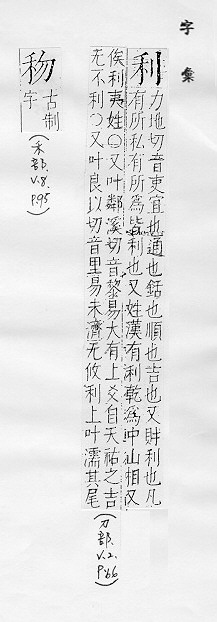 字彙
利
力地切音吏宜也通也銛也順也吉也又財利也凡
有所私有所為皆利也又姓漢有利乾為中山相又
俟利夷姓○又叶鄰溪切音黎易大有上爻自天祐之吉
无不利○又叶良以切音里易未濟无攸利上叶濡其尾
(刀部. V.2. P.66)
古制
字
(禾部. V.8. P.95)